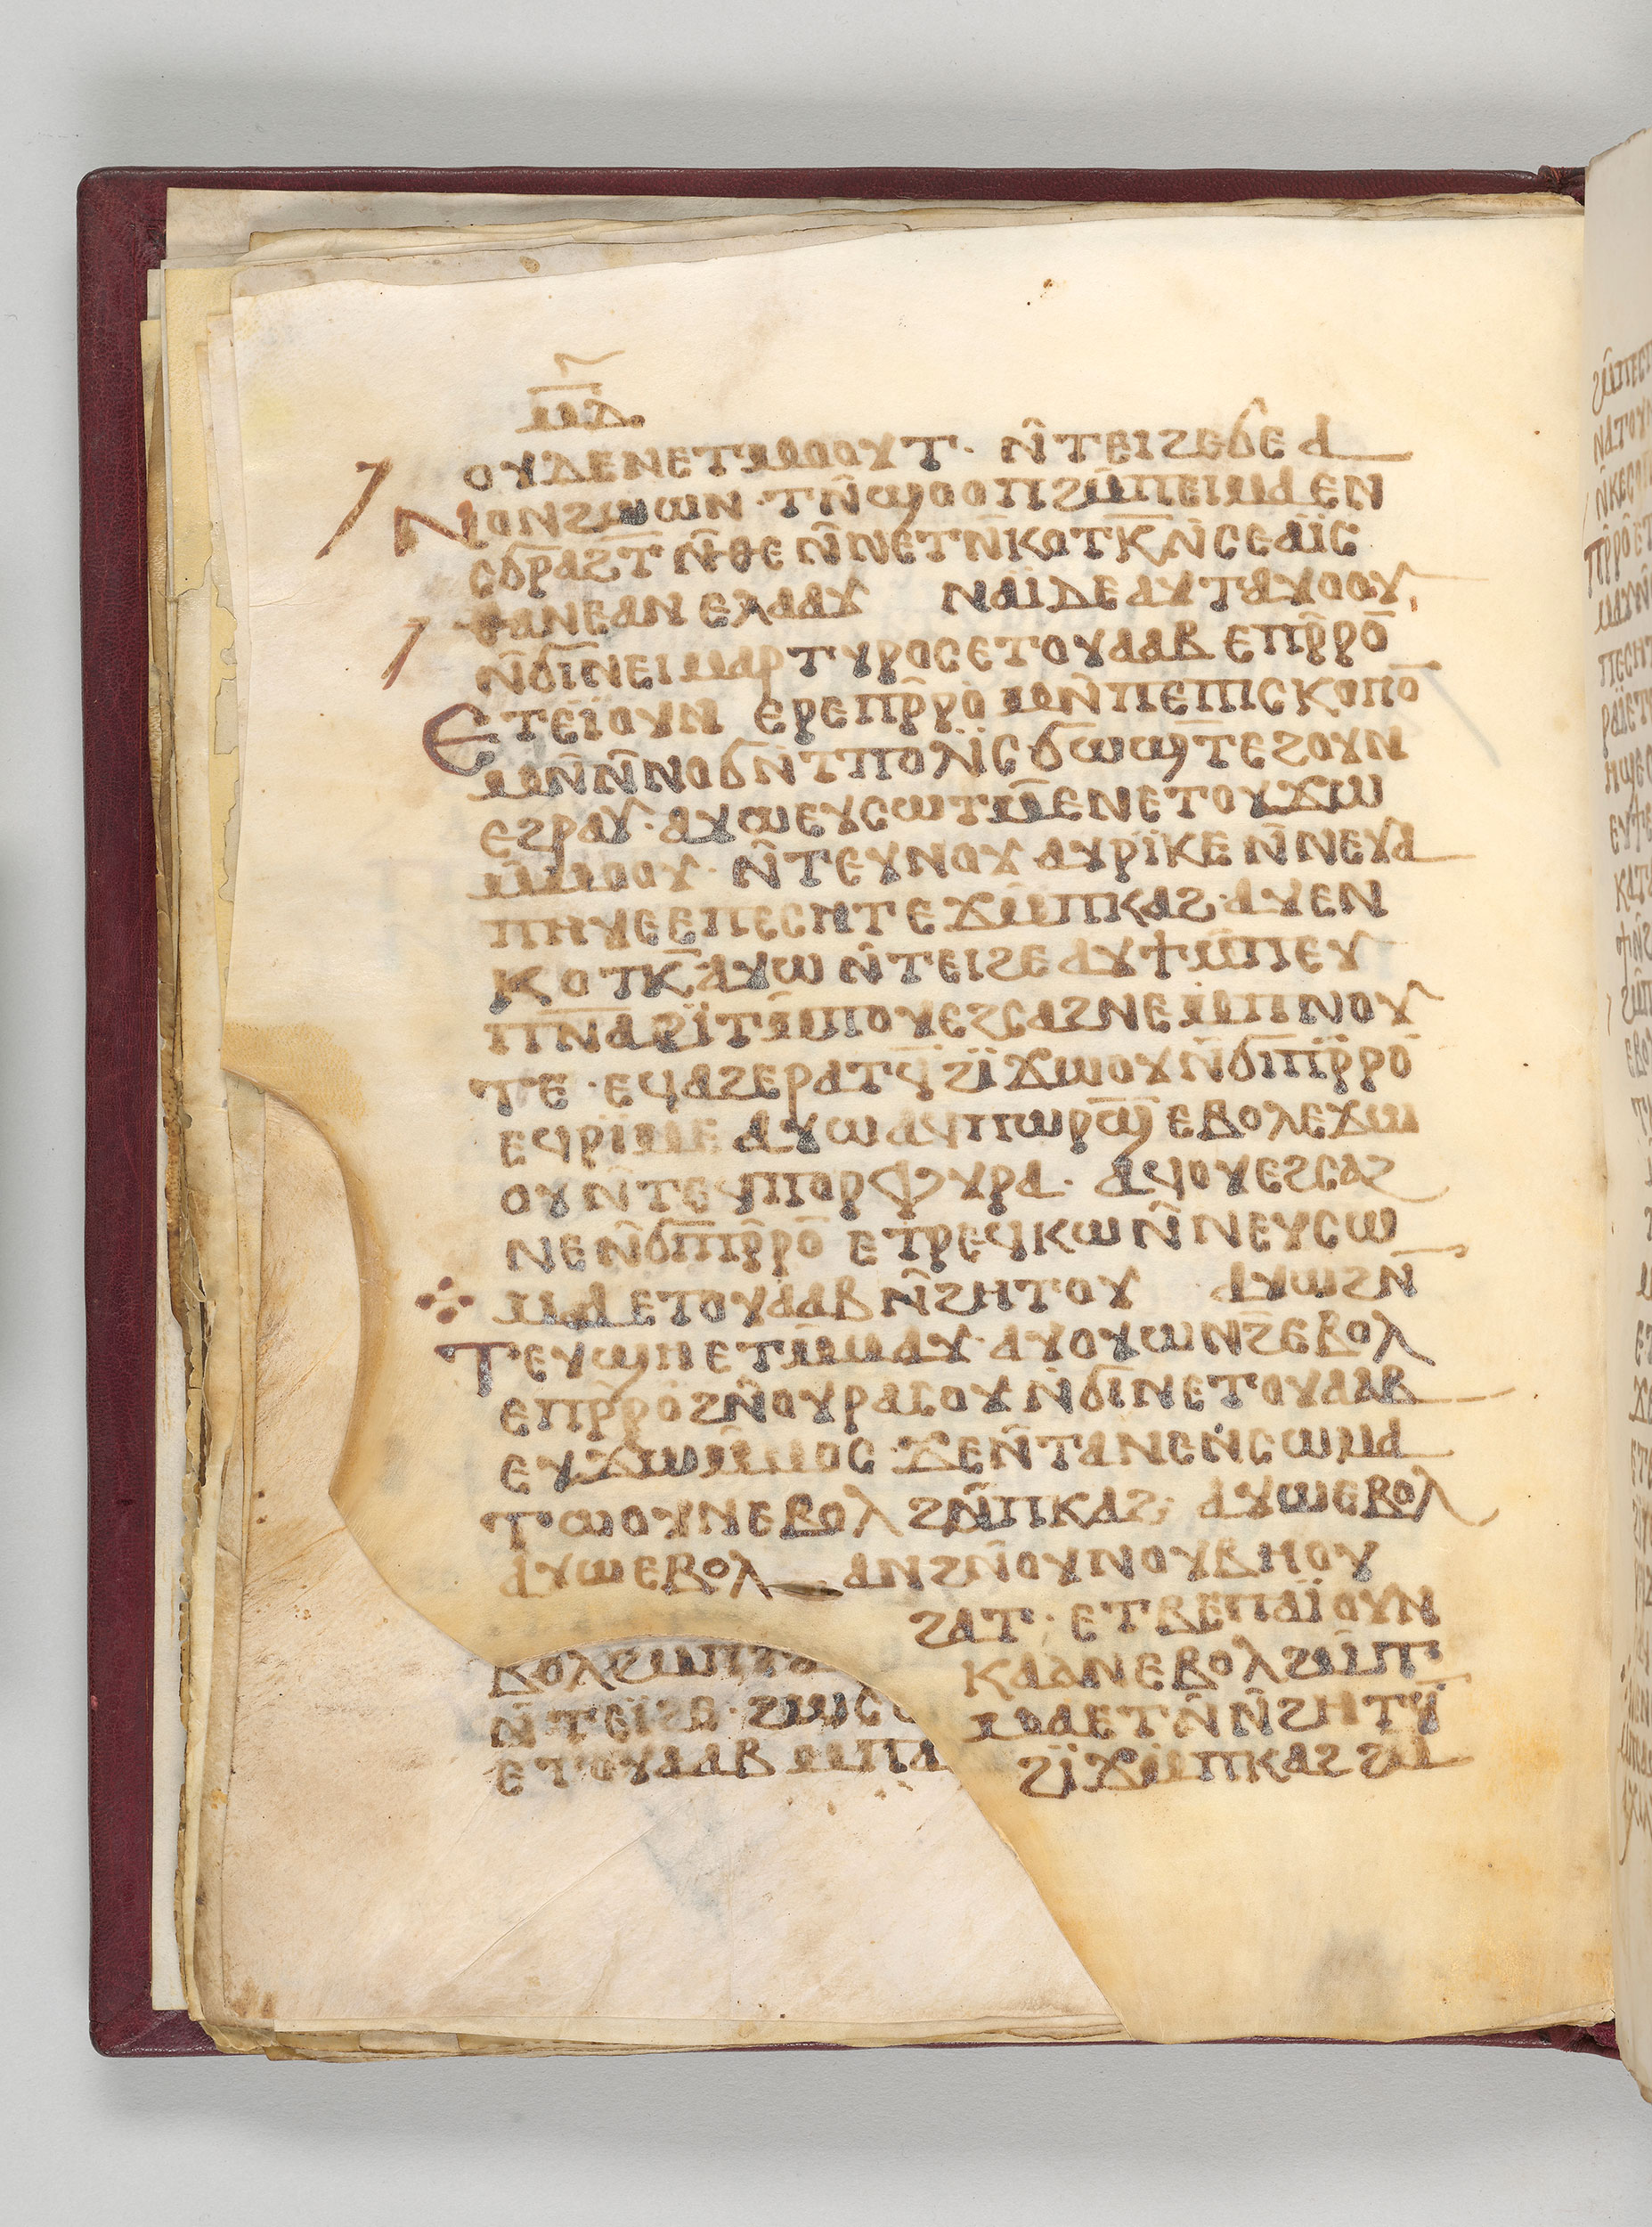 ⲙ̅ⲇ̅
ⲟⲩⲇⲉⲛⲉⲧⲙⲟⲟⲩⲧ· ⲛ̄ⲧⲉⲓϩⲉϭⲉⲁ
ⲛⲟⲛϩⲱⲱⲛ·ⲧⲛ̄ϣⲟⲟⲡϩⲙ̄ⲡⲉⲓⲙⲁⲉⲛ
ⲥϭⲣⲁϩⲧ̅ⲛ̄ⲑⲉⲛ̄ⲛⲉⲧⲛ̄ⲕⲟⲧⲕ̄ⲛ̄ⲥⲉⲁⲓⲥ
ⲑⲁⲛⲉⲁⲛⲉⲗⲁⲁⲩ ⲛⲁⲓ̈ⲇⲉⲁⲩⲧⲁⲩⲟⲟⲩ
ⲛ̄ϭⲓⲛⲉⲓⲙⲁⲣⲧⲩⲣⲟⲥⲉⲧⲟⲩⲁⲁⲃⲉⲡⲣ̄ⲣⲟ̄
ⲉⲧⲉⲓ̈ⲟⲩⲛ ⲉⲣⲉⲡⲣ̄ⲣⲟ ⲙⲛ̄ⲡⲉⲡⲓⲥⲕⲟⲡⲟ̅
ⲙⲛ̄ⲛ̄ⲛⲟϭⲛ̄ⲧⲡⲟⲗⲓⲥ·ϭⲱϣⲧ̅ⲉϩⲟⲩⲛ
ⲉϩⲣⲁⲩ·ⲁⲩⲱⲉⲩⲥⲱⲧⲙ̄ⲉⲛⲉⲧⲟⲩϫⲱ
ⲙ̄ⲙⲟⲟⲩ·ⲛ̄ⲧⲉⲩⲛⲟⲩⲁⲩⲣⲓ̈ⲕⲉⲛ̄ⲛⲉⲩⲁ
ⲡⲏⲩⲉⲉⲡⲉⲥⲏⲧⲉϫⲙ̄ⲡⲕⲁϩ·ⲁⲩⲉⲛ
ⲕⲟⲧⲕ̄ⲁⲩⲱⲛ̄ⲧⲉⲓϩⲉⲁⲩϯⲙ̄ⲡⲉⲩ
ⲡⲛ̅ⲁϩⲓ̈ⲧⲙ̄ⲡⲟⲩⲉϩⲥⲁϩⲛⲉⲙ̄ⲡⲛⲟⲩ
ⲧⲉ·ⲉϥⲁϩⲉⲣⲁⲧϥ̄ϩⲓ̈ϫⲱⲟⲩⲛ̄ϭⲓⲡⲣ̄ⲣⲟ
ⲉϥⲣⲓⲙⲉⲁⲩⲱⲁϥⲡⲱⲣϣ̄ⲉⲃⲟⲗⲉϫⲱ
ⲟⲩⲛ̄ⲧⲉϥⲡⲟⲣⲫⲩⲣⲁ· ⲁϥⲟⲩⲉϩⲥⲁϩ
ⲛⲉⲛ̄ϭⲓⲡⲣ̄ⲣⲟ̄ ⲉⲧⲣⲉϥⲕⲱⲛ̄ⲛⲉⲩⲥⲱ
ⲙⲁⲉⲧⲟⲩⲁⲁⲃⲛ̄ϩⲏⲧⲟⲩ ⲁⲩⲱϩⲛ̄
ⲧⲉⲩϣⲏⲉⲧⲙ̄ⲙⲁⲩ·ⲁⲩⲟⲩⲱⲛϩⲉⲃⲟⲗ
ⲉⲡⲣ̄ⲣⲟϩⲛ̄ⲟⲩⲣⲁⲥⲟⲩⲛ̄ϭⲓⲛⲉⲧⲟⲩⲁⲁⲃ
ⲉⲩϫⲱⲙ̄ⲙⲟⲥ·ϫⲉⲛ̄ⲧⲁⲛⲉⲛⲥⲱⲙⲁ
ⲧⲱⲟⲩⲛⲉⲃⲟⲗϩⲙ̄ⲡⲕⲁϩ· ⲁⲩⲱⲉⲃⲟⲗ
ⲁⲩⲱⲉⲃⲟⲗ ⲁⲛϩⲛ̄ⲟⲩⲛⲟⲩⲃⲏⲟⲩ
ϩⲁⲧ·ⲉⲧⲃⲉⲡⲁⲓ̈ⲟⲩⲛ
ⲕⲁⲁⲛⲉⲃⲟⲗϩⲙ̄ⲡ
ⲛ̄ⲧⲉⲓ̈ϩⲉ·ϩⲱⲥ ⲙⲁⲉⲧⲛ̄ⲛ̄ϩⲏⲧϥ̄
ⲉⲧⲟⲩⲁⲁⲃⲙ̄ⲡⲁ ϩⲓ̈ϫⲙ̄ⲡⲕⲁϩϩⲙ